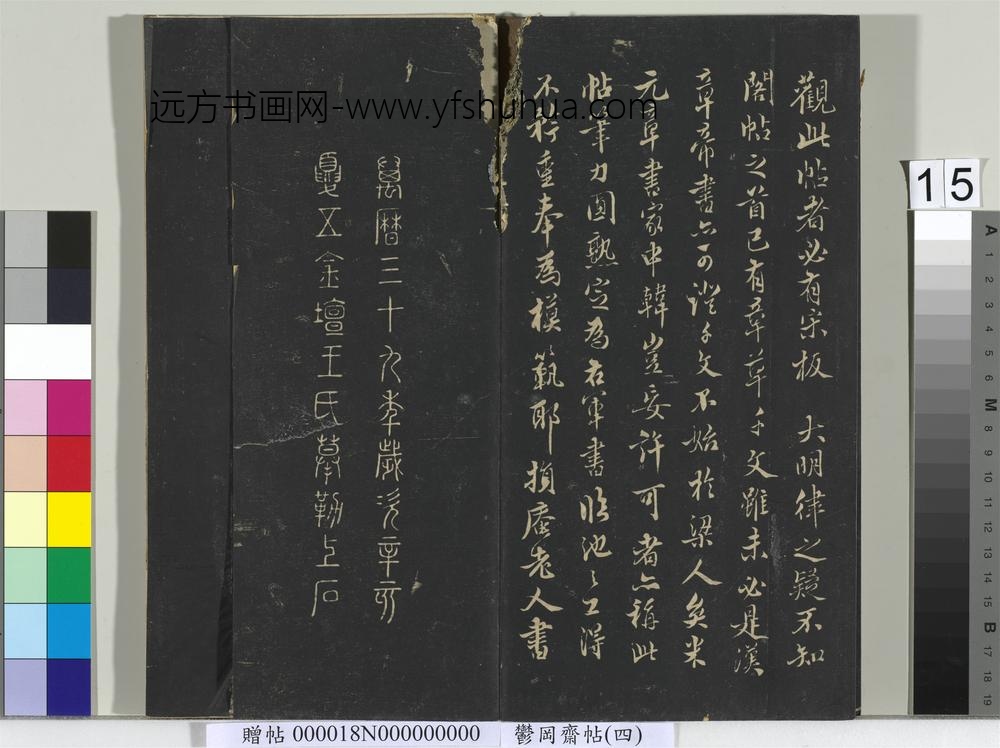 觀此帖者必有宋板　大明律之疑不知
閣帖之首已有章草千文雖未必是漢
章帝書亦可證千文不始於梁人矣米
元章書家申韓豈妄許可者亦稱此
帖筆力圓熟定為右軍書臨池之工得
不梓重奉為模範耶損庵老人書
萬曆三十九年歲次辛亥
夏五金壇王氏摹勒上石
远方书画网-www.yfshuhua.com
15
A
1
2
3
4
5
6
M
8
9
10
11
12
13
14
15
B
17
18
19
贈帖 000018N000000000　鬱岡齋帖(四)